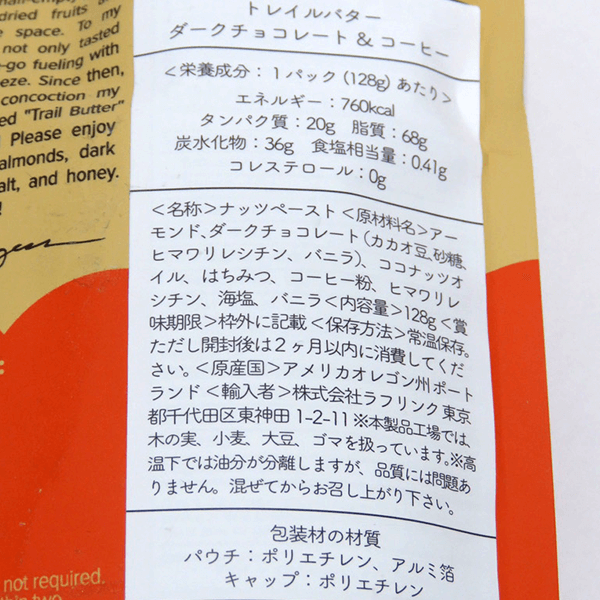 dried fruits
space. To my
not only tasted
-go fueling with
eze. Since then,
concoction my
ed "Trail Butter"
Please enjoy
almonds, dark
alt, and honey.
トレイルバター
ダークチョコレート & コーヒー
＜栄養成分：1パック (128g) あたり＞
エネルギー：760kcal
タンパク質：20g 脂質：68g
炭水化物：36g 食塩相当量：0.41g
コレステロール：0g
＜名称＞ナッツペースト＜原材料名＞アー
モンド、ダークチョコレート（カカオ豆、砂糖、
ヒマワリレシチン、バニラ）、ココナッツオ
イル、はちみつ、コーヒー粉、ヒマワリレ
シチン、海塩、バニラ＜内容量＞128g＜賞
味期限＞枠外に記載＜保存方法＞常温保存。
ただし開封後は2ヶ月以内に消費してくだ
さい。＜原産国＞アメリカオレゴン州ポート
ランド＜輸入者＞株式会社ラフリンク東京
都千代田区東神田 1-2-11 ※本製品工場では、
木の実、小麦、大豆、ゴマを扱っています。※高
温下では油分が分離しますが、品質には問題あ
りません。混ぜてからお召し上がり下さい。
包装材の材質
パウチ：ポリエチレン、アルミ箔
キャップ：ポリエチレン
not required.